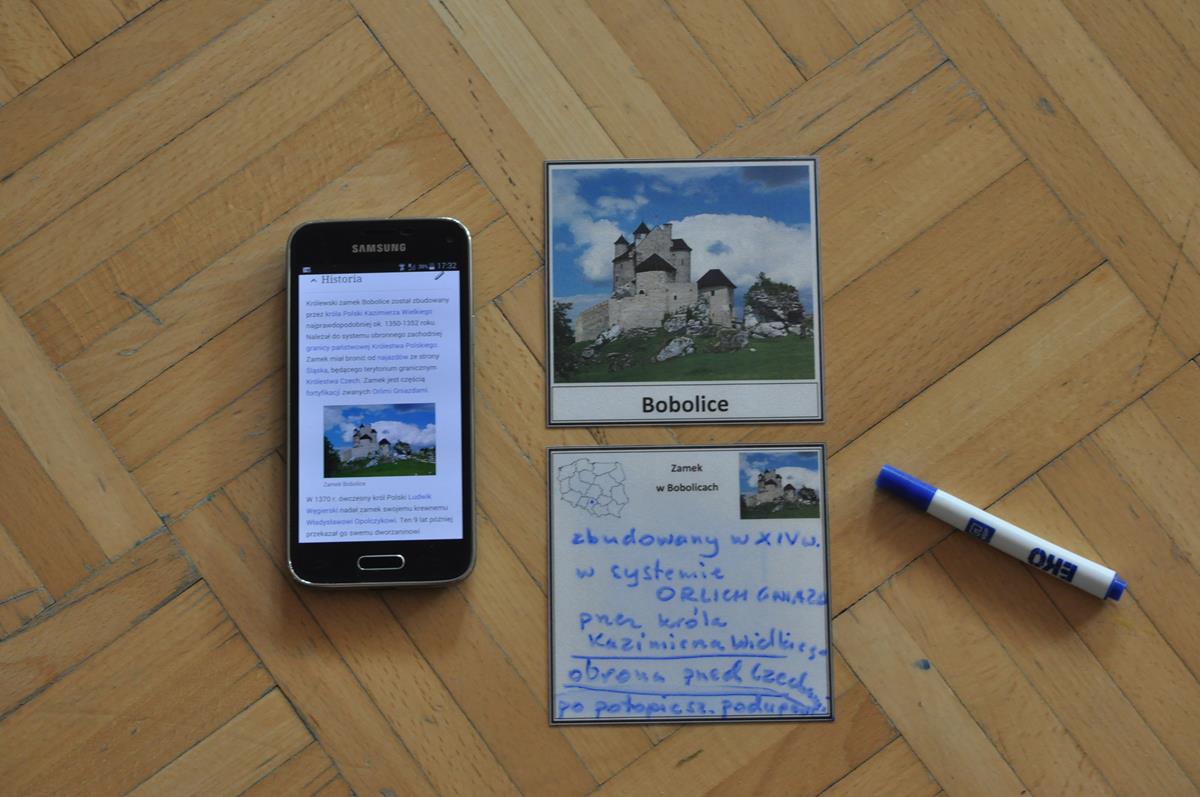 SAMSUNG
17:32
Historia
Królewski zamek Bobolice został zbudowany
przez króla Polski Kazimierza Wielkiego
najprawdopodobniej ok. 1350-1352 roku.
Należał do systemu obronnego zachodniej
granicy państwowej Królestwa Polskiego.
Zamek miał bronić od najazdów ze strony
Śląska, będącego terytorium granicznym
Królestwa Czech. Zamek jest częścią
fortyfikacji zwanych Orlimi Gniazdami.
Zamek Bobolice
W 1370 r. ówczesny król Polski Ludwik
Węgierski nadał zamek swojemu krewnemu
Władysławowi Opolczykowi. Ten 9 lat później
przekazał go swemu dworzaninowi
Bobolice
Zamek
w Bobolicach
zbudowany w XIV w.
w systemie
ORLICH GNIAZD
przez króla
Kazimierza Wielkiego
obrona przed Czechami
po potopie sz.
EKO